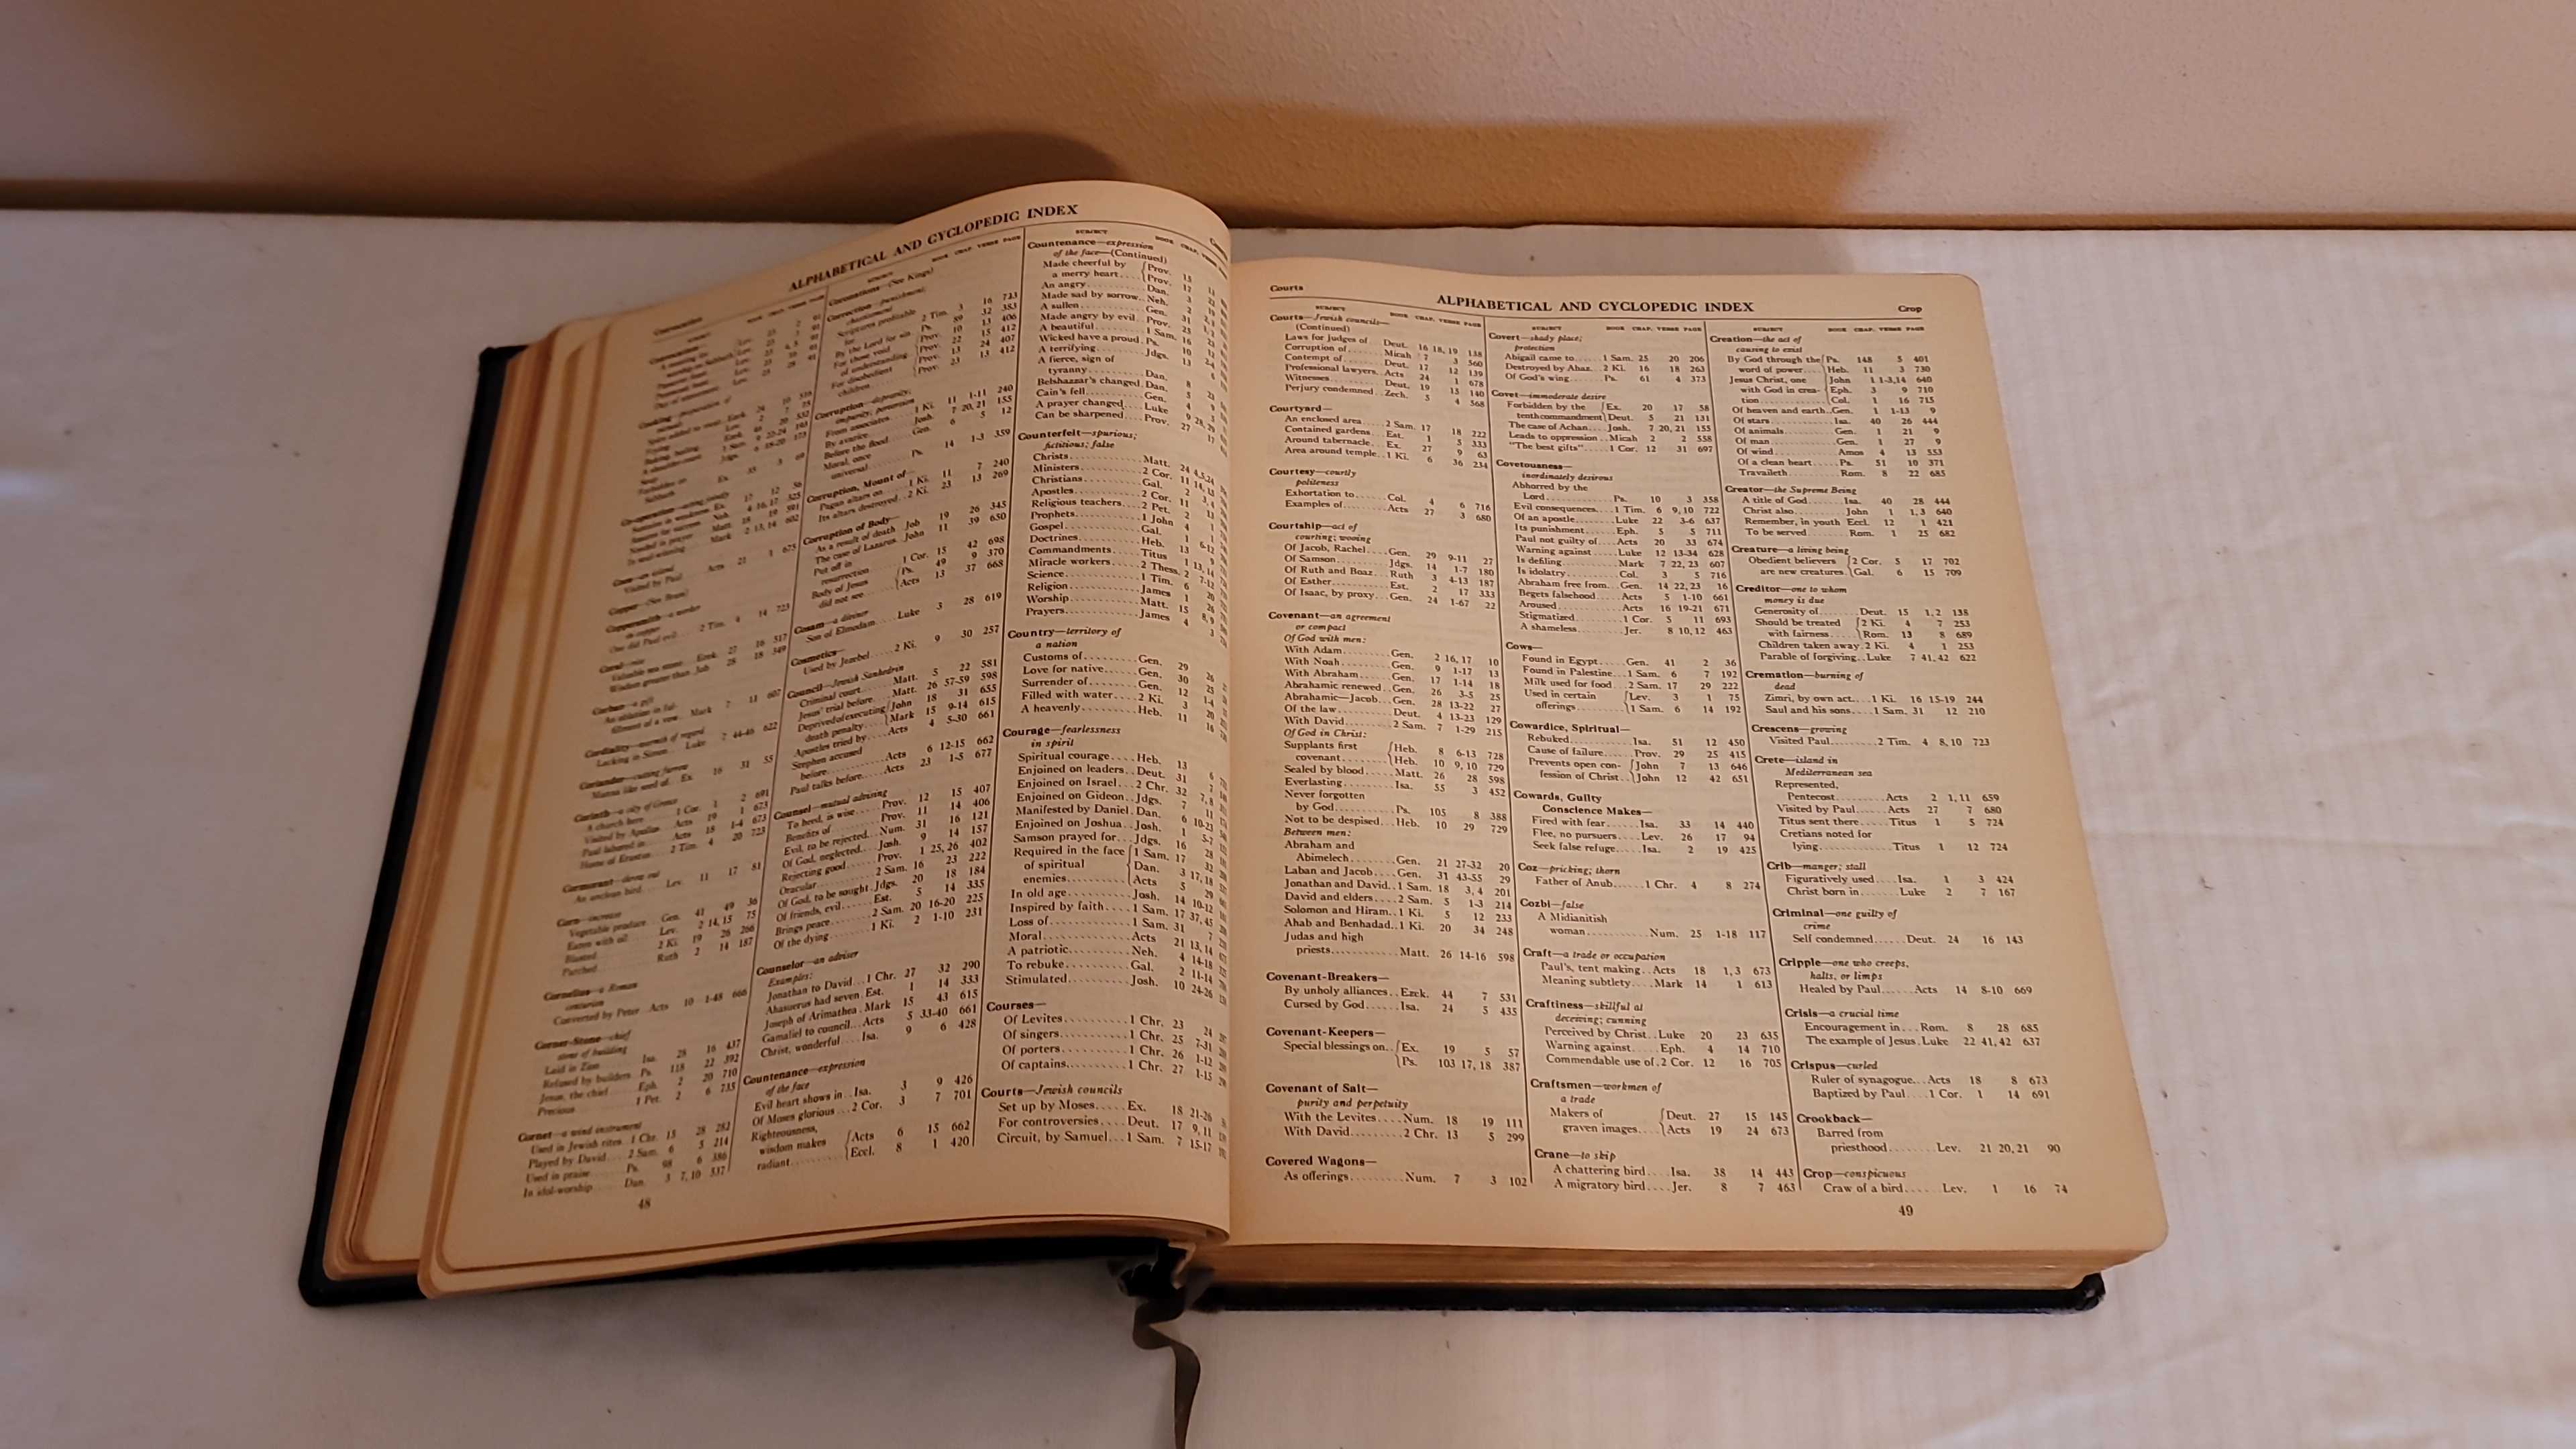 ALPHABETICAL AND CYCLOPEDIC INDEX
Visited by Paul Acts 21 1 675
Corinth—a city of Greece
A church here 1 Cor. 1 2 691
Visited by Apollos Acts 19 1 673
Paul labored in Acts 18 1-4 673
Home of Erastus 2 Tim. 4 20 723
Cormorant
An unclean bird Lev. 11 17 81
Corn—increase
Vegetable produce Gen. 41 49 36
Eaten with oil Lev. 2 14, 15 75
Blasted 2 Ki. 19 26 266
Parched Ruth 2 14 187
Cornelius—a Roman
centurion
Converted by Peter Acts 10 1-48 666
Corner-Stone—chief
stone of building
Laid in Zion Isa. 28 16 437
Refused by builders Ps. 118 22 392
Jesus, the chief Eph. 2 20 710
Precious 1 Pet. 2 6 735
Cornet—a wind instrument
Used in Jewish rites 1 Chr. 15 28 282
Played by David 2 Sam. 6 5 214
Used in praise Ps. 98 6 386
In idol-worship Dan. 3 7, 10 537
48
Coronations—(See Kings)
Correction—punishment;
chastisement
Scriptures profitable
for 2 Tim. 3 16 723
By the Lord for sin Ps. 89 32 383
For those void Prov. 10 13 406
of understanding Prov. 22 15 412
For disobedient Prov. 13 24 407
children Prov. 23 13 412
Corruption—depravity;
impurity; perversion
From associates 1 Ki. 11 1-11 240
By avarice Josh. 7 20, 21 155
Before the flood Gen. 6 5 12
Moral, once
universal Ps. 14 1-3 359
Corruption, Mount of—
Pagan altars on 1 Ki. 11 7 240
Its altars destroyed 2 Ki. 23 13 269
Corruption of Body—
As a result of death Job 19 26 345
The case of Lazarus John 11 39 650
Put off in
resurrection 1 Cor. 15 42 698
Body of Jesus Ps. 49 9 370
did not see Acts 13 37 668
Cosam—a diviner
Son of Elmodam Luke 3 28 619
Cosmetics—
Used by Jezebel 2 Ki. 9 30 257
Council—Jewish Sanhedrin
Criminal court Matt. 5 22 581
Jesus' trial before Matt. 26 57-59 598
Deprived of executing John 18 31 655
death penalty Mark 15 9-14 615
Apostles tried by Acts 4 5-30 661
Stephen accused
before Acts 6 12-15 662
Paul talks before Acts 23 1-5 677
Counsel—mutual advising
To heed, is wise Prov. 12 15 407
Benefits of Prov. 11 14 406
Evil, to be rejected Num. 31 16 121
Of God, neglected Josh. 9 14 157
Rejecting good Prov. 1 25, 26 402
Oracular 2 Sam. 16 23 222
Of God, to be sought Jdgs. 20 18 184
Of friends, evil Est. 5 14 335
Brings peace 2 Sam. 20 16-20 225
Of the dying 1 Ki. 2 1-10 231
Counselor—an adviser
Examples:
Jonathan to David 1 Chr. 27 32 290
Ahasuerus had seven Est. 1 14 333
Joseph of Arimathea Mark 15 43 615
Gamaliel to council Acts 5 33-40 661
Christ, wonderful Isa. 9 6 428
Countenance—expression
of the face
Evil heart shows in Isa. 3 9 426
Of Moses glorious 2 Cor. 3 7 701
Righteousness,
wisdom makes Acts 6 15 662
radiant Eccl. 8 1 420
SUBJECT
Countenance—expression
of the face—(Continued)
Made cheerful by Prov. 15
a merry heart Prov. 17
An angry Dan. 3
Made sad by sorrow Neh. 2
A sullen Gen. 31
Made angry by evil Prov. 25
A beautiful 1 Sam. 16
Wicked have a proud Ps. 10
A terrifying Jdgs. 13
A fierce, sign of
tyranny Dan. 8
Belshazzar's changed Dan. 5
Cain's fell Gen. 4
A prayer changed Luke 9
Can be sharpened Prov. 27 17
Counterfeit—spurious;
fictitious; false
Christs Matt. 24
Ministers 2 Cor. 11
Christians Gal. 2
Apostles 2 Cor. 11
Religious teachers 2 Pet. 2
Prophets 1 John 4
Gospel Gal. 1
Doctrines Heb. 13
Commandments Titus 1
Miracle workers 2 Thess. 2
Science 1 Tim. 6
Religion James 1
Worship Matt. 15
Prayers James 4
Country—territory of
a nation
Customs of Gen. 29
Love for native Gen. 30
Surrender of Gen. 12
Filled with water 2 Ki. 3
A heavenly Heb. 11
Courage—fearlessness
in spirit
Spiritual courage Heb. 13
Enjoined on leaders Deut. 31
Enjoined on Israel 2 Chr. 32
Enjoined on Gideon Jdgs. 7
Manifested by Daniel Dan. 6
Enjoined on Joshua Josh. 1
Samson prayed for Jdgs. 16
Required in the face 1 Sam. 17
of spiritual Dan. 3
enemies Acts 5
In old age Josh. 14
Inspired by faith 1 Sam. 17
Loss of 1 Sam. 31
Moral Acts 21
A patriotic Neh. 4
To rebuke Gal. 2
Stimulated Josh. 10
Courses—
Of Levites 1 Chr. 23
Of singers 1 Chr. 25
Of porters 1 Chr. 26
Of captains 1 Chr. 27
Courts—Jewish councils
Set up by Moses Ex. 18 21-26
For controversies Deut. 17 9, 11
Circuit, by Samuel 1 Sam. 7 15-17
Courts
ALPHABETICAL AND CYCLOPEDIC INDEX
Crop
SUBJECT BOOK CHAP. VERSE PAGE
Courts—Jewish councils—
(Continued)
Laws for judges of Deut. 16 18, 19 138
Corruption of Micah 7 3 560
Contempt of Deut. 17 12 139
Professional lawyers Acts 24 1 678
Witnesses Deut. 19 15 140
Perjury condemned Zech. 5 4 568
Courtyard—
An enclosed area 2 Sam. 17 18 222
Contained gardens Est. 1 5 333
Around tabernacle Ex. 27 9 63
Area around temple 1 Ki. 6 36 234
Courtesy—courtly
politeness
Exhortation to Col. 4 6 716
Examples of Acts 27 3 680
Courtship—act of
courting; wooing
Of Jacob, Rachel Gen. 29 9-11 27
Of Samson Jdgs. 14 1-7 180
Of Ruth and Boaz Ruth 3 4-13 187
Of Esther Est. 2 17 333
Of Isaac, by proxy Gen. 24 1-67 22
Covenant—an agreement
or compact
Of God with men:
With Adam Gen. 2 16, 17 10
With Noah Gen. 9 1-17 13
With Abraham Gen. 17 1-14 18
Abrahamic renewed Gen. 26 3-5 25
Abrahamic—Jacob Gen. 28 13-22 27
Of the law Deut. 4 13-23 129
With David 2 Sam. 7 1-29 215
Of God in Christ:
Supplants first Heb. 8 6-13 728
covenant Heb. 10 9, 10 729
Sealed by blood Matt. 26 28 598
Everlasting Isa. 55 3 452
Never forgotten
by God Ps. 105 8 388
Not to be despised Heb. 10 29 729
Between men:
Abraham and
Abimelech Gen. 21 27-32 20
Laban and Jacob Gen. 31 43-55 29
Jonathan and David 1 Sam. 18 3, 4 201
David and elders 2 Sam. 5 1-3 214
Solomon and Hiram 1 Ki. 5 12 233
Ahab and Benhadad 1 Ki. 20 34 248
Judas and high
priests Matt. 26 14-16 598
Covenant-Breakers—
By unholy alliances Ezek. 44 7 531
Cursed by God Isa. 24 5 435
Covenant-Keepers—
Special blessings on Ex. 19 5 57
Ps. 103 17, 18 387
Covenant of Salt—
purity and perpetuity
With the Levites Num. 18 19 111
With David 2 Chr. 13 5 299
Covered Wagons—
As offerings Num. 7 3 102
SUBJECT BOOK CHAP. VERSE PAGE
Covert—shady place;
protection
Abigail came to 1 Sam. 25 20 206
Destroyed by Ahaz 2 Ki. 16 18 263
Of God's wing Ps. 61 4 373
Covet—immoderate desire
Forbidden by the Ex. 20 17 58
tenth commandment Deut. 5 21 131
The case of Achan Josh. 7 20, 21 155
Leads to oppression Micah 2 2 558
"The best gifts" 1 Cor. 12 31 697
Covetousness—
inordinately desirous
Abhorred by the
Lord Ps. 10 3 358
Evil consequences 1 Tim. 6 9, 10 722
Of an apostle Luke 22 3-6 637
Its punishment Eph. 5 5 711
Paul not guilty of Acts 20 33 674
Warning against Luke 12 13-34 628
Is defiling Mark 7 22, 23 607
Is idolatry Col. 3 5 716
Abraham free from Gen. 14 22, 23 16
Begets falsehood Acts 5 1-10 661
Aroused Acts 16 19-21 671
Stigmatized 1 Cor. 5 11 693
A shameless Jer. 8 10, 12 463
Cows—
Found in Egypt Gen. 41 2 36
Found in Palestine 1 Sam. 6 7 192
Milk used for food 2 Sam. 17 29 222
Used in certain Lev. 3 1 75
offerings 1 Sam. 6 14 192
Cowardice, Spiritual—
Rebuked Isa. 51 12 450
Cause of failure Prov. 29 25 415
Prevents open con- John 7 13 646
fession of Christ John 12 42 651
Cowards, Guilty
Conscience Makes—
Fired with fear Isa. 33 14 440
Flee, no pursuers Lev. 26 17 94
Seek false refuge Isa. 2 19 425
Coz—pricking; thorn
Father of Anub 1 Chr. 4 8 274
Cozbi—false
A Midianitish
woman Num. 25 1-18 117
Craft—a trade or occupation
Paul's, tent making Acts 18 1, 3 673
Meaning subtlety Mark 14 1 613
Craftiness—skillful at
deceiving; cunning
Perceived by Christ Luke 20 23 635
Warning against Eph. 4 14 710
Commendable use of 2 Cor. 12 16 705
Craftsmen—workmen of
a trade
Makers of Deut. 27 15 145
graven images Acts 19 24 673
Crane—to skip
A chattering bird Isa. 38 14 443
A migratory bird Jer. 8 7 463
SUBJECT BOOK CHAP. VERSE PAGE
Creation—the act of
causing to exist
By God through the Ps. 148 5 401
word of power Heb. 11 3 730
Jesus Christ, one John 1 1-3,14 640
with God in crea- Eph. 3 9 710
tion Col. 1 16 715
Of heaven and earth Gen. 1 1-13 9
Of stars Isa. 40 26 444
Of animals Gen. 1 21 9
Of man Gen. 1 27 9
Of wind Amos 4 13 553
Of a clean heart Ps. 51 10 371
Travaileth Rom. 8 22 685
Creator—the Supreme Being
A title of God Isa. 40 28 444
Christ also John 1 1, 3 640
Remember, in youth Eccl. 12 1 421
To be served Rom. 1 25 682
Creature—a living being
Obedient believers 2 Cor. 5 17 702
are new creatures Gal. 6 15 709
Creditor—one to whom
money is due
Generosity of Deut. 15 1, 2 138
Should be treated 2 Ki. 4 7 253
with fairness Rom. 13 8 689
Children taken away 2 Ki. 4 1 253
Parable of forgiving Luke 7 41, 42 622
Cremation—burning of
dead
Zimri, by own act 1 Ki. 16 15-19 244
Saul and his sons 1 Sam. 31 12 210
Crescens—growing
Visited Paul 2 Tim. 4 8, 10 723
Crete—island in
Mediterranean sea
Represented,
Pentecost Acts 2 1, 11 659
Visited by Paul Acts 27 7 680
Titus sent there Titus 1 5 724
Cretians noted for
lying Titus 1 12 724
Crib—manger; stall
Figuratively used Isa. 1 3 424
Christ born in Luke 2 7 167
Criminal—one guilty of
crime
Self condemned Deut. 24 16 143
Cripple—one who creeps,
halts, or limps
Healed by Paul Acts 14 8-10 669
Crisis—a crucial time
Encouragement in Rom. 8 28 685
The example of Jesus Luke 22 41, 42 637
Crispus—curled
Ruler of synagogue Acts 18 8 673
Baptized by Paul 1 Cor. 1 14 691
Crookback—
Barred from
priesthood Lev. 21 20, 21 90
Crop—conspicuous
Craw of a bird Lev. 1 16 74
49